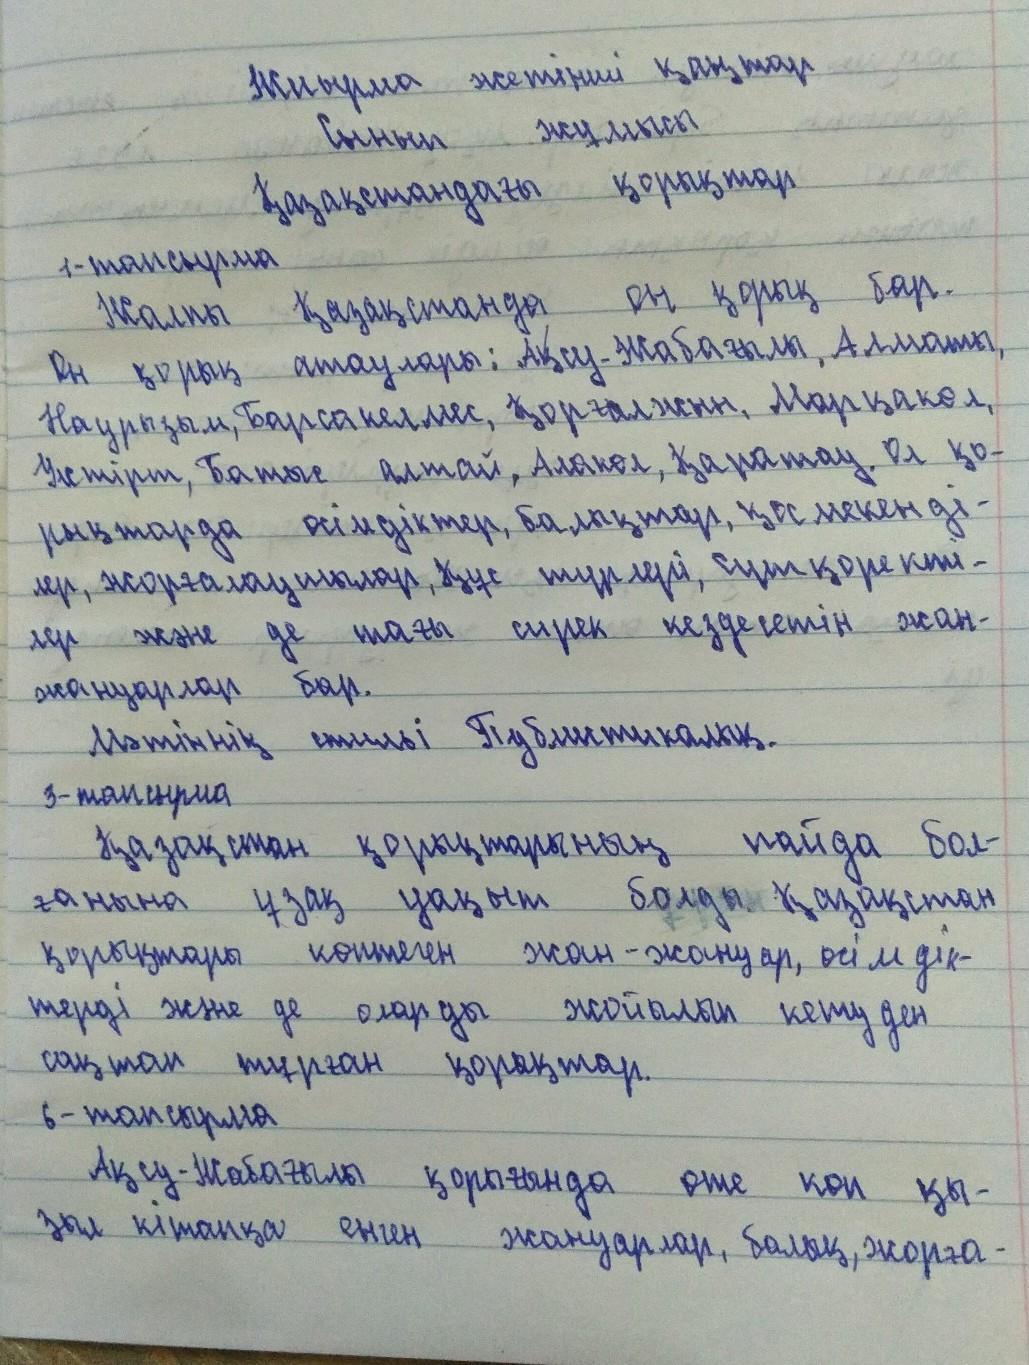 Жиырма жетінші қаңтар
Сынып жұмысы
Қазақстандағы қорықтар
1-тапсырма
Жалпы Қазақстанда он қорық бар.
Он қорық атаулары: Ақсу-Жабағылы, Алматы,
Наурызым, Барсакелмес, Қорғалжын, Марқакөл,
Үстірт, Батыс алтай, Алакөл, Қаратау. Ол қо-
рықтарда өсімдіктер, балықтар, қос мекенді-
лер, жорғалаушылар, құс түрлері, сүтқоректі-
лер және де тағы сирек кездесетін жан-
жануарлар бар.
Мәтіннің стильі Публистикалық.
3-тапсырма
Қазақстан қорықтарының пайда бол-
ғанына ұзақ уақыт болды. Қазақстан
қорықтары көптеген жан-жануар, өсімдік-
терді және де оларды жойылып кетуден
сақтап тұрған қорықтар.
6-тапсырма
Ақсу-Жабағылы қорығында өте көп қы-
зыл кітапқа енген жануарлар, балық, жорға-